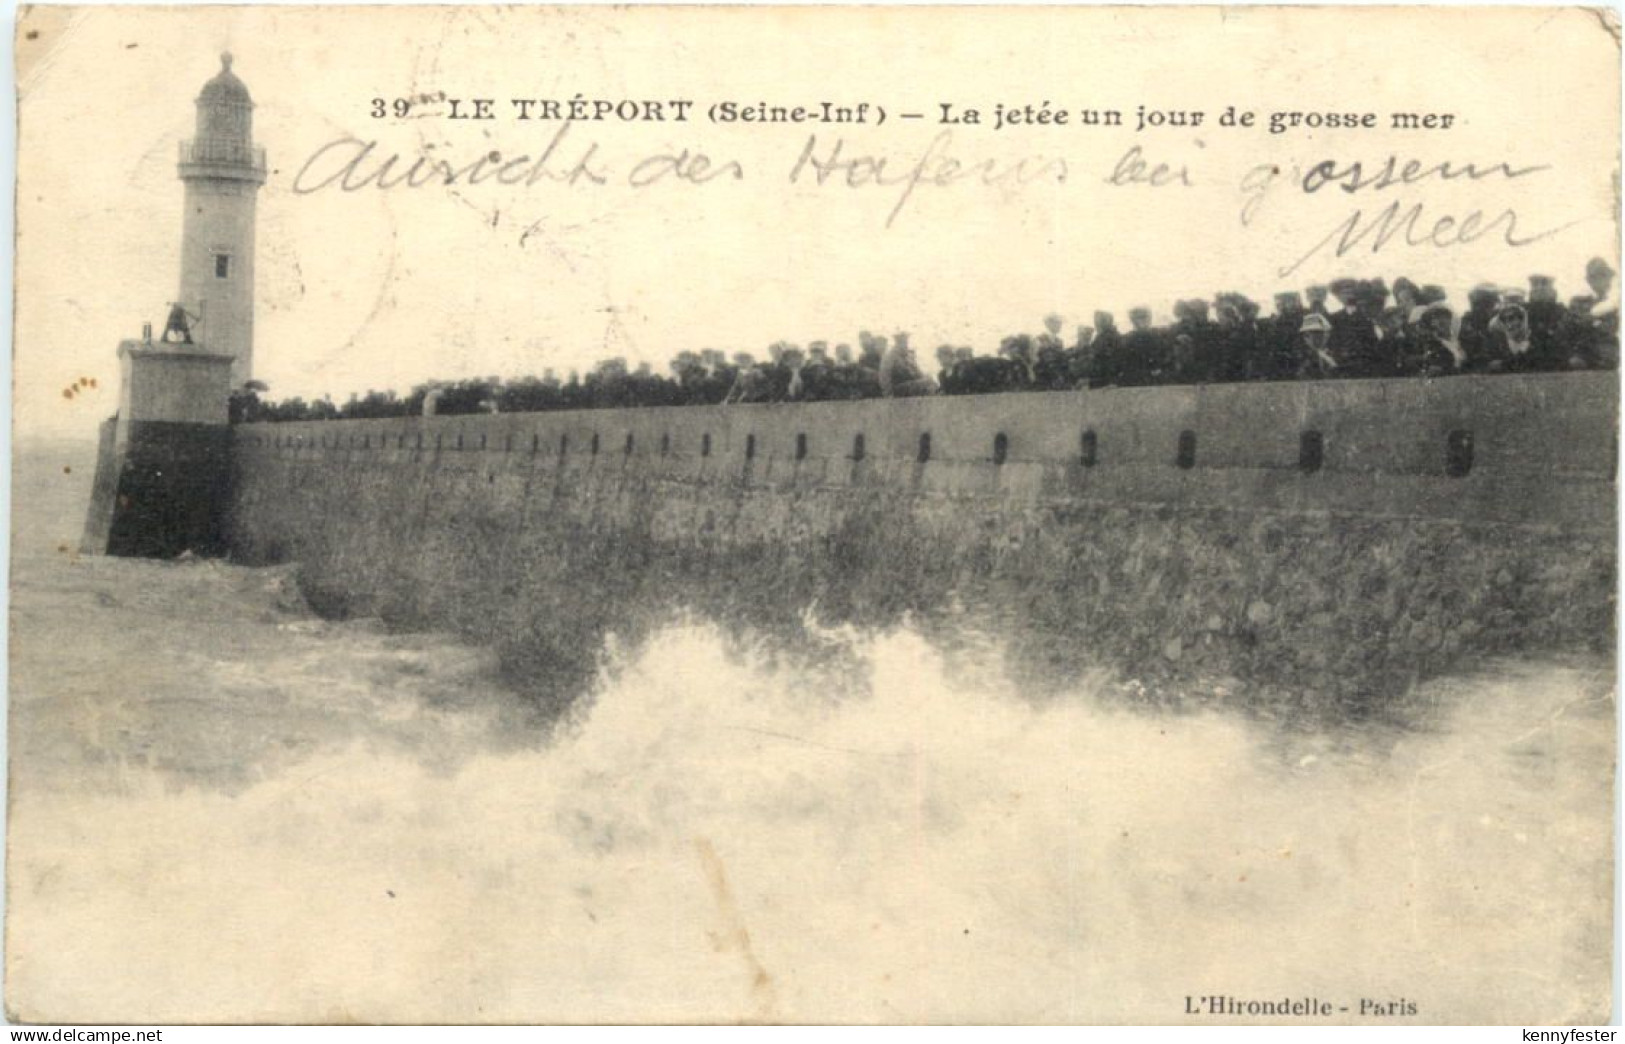 39 - LE TRÉPORT (Seine-Inf) – La jetée un jour de grosse mer
Ansicht des Hafens bei grossem
Meer
L'Hirondelle - Paris
www.delcampe.net
kennyfester